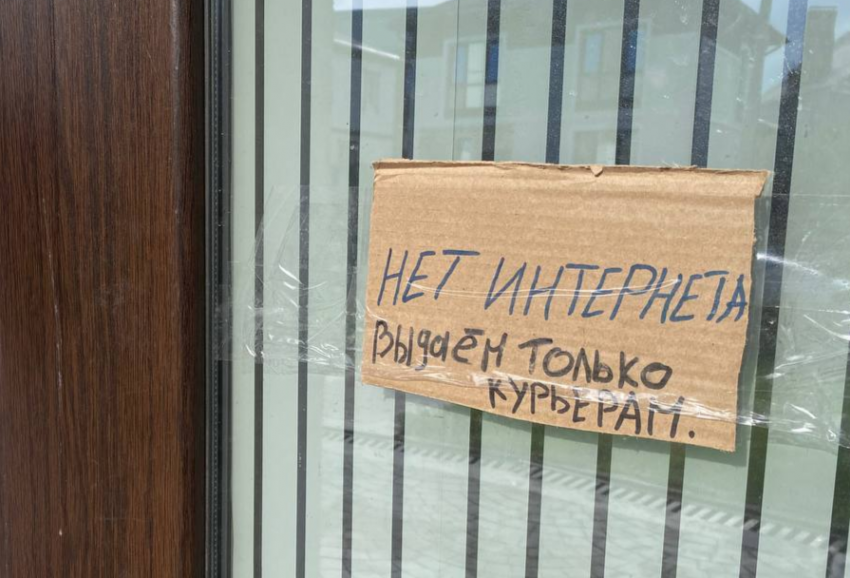 НЕТ ИНТЕРНЕТА
Выдаём только
курьерам.